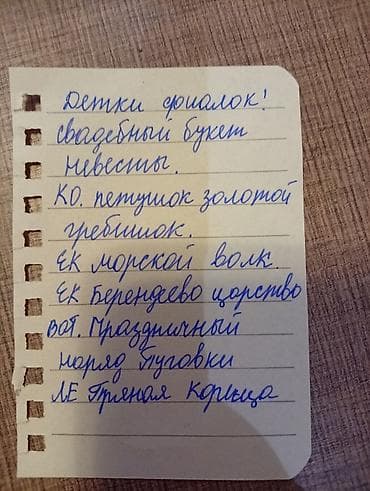 Детки фиалок!
Свадебный букет
невесты.
КО. петушок золотой
гребешок.
ЕК морской волк.
ЕК Берендеево царство
Вот. Праздничный
наряд Пуговки
ЛЕ Пряная Корица